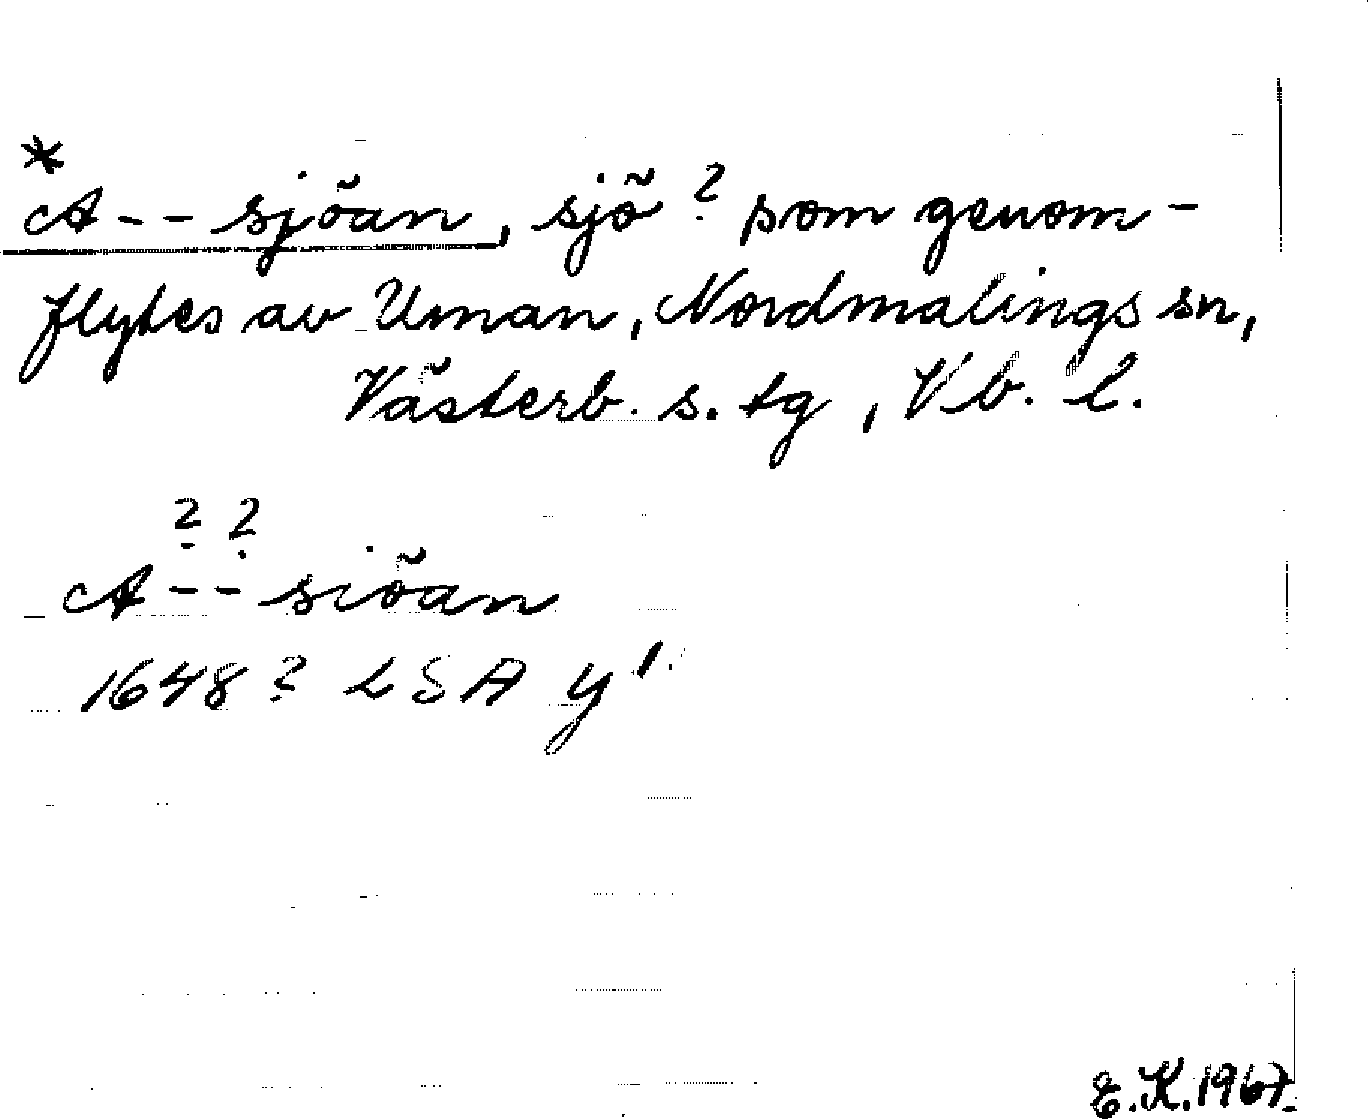 *
A - - sjöan, sjö ? som genom-
flytes av Uman, Nordmalings sn,
Västerb. s. tg, Vb. l.
? ?
A - - siöan
1648 ? LSA y 1.
E.K.1967.